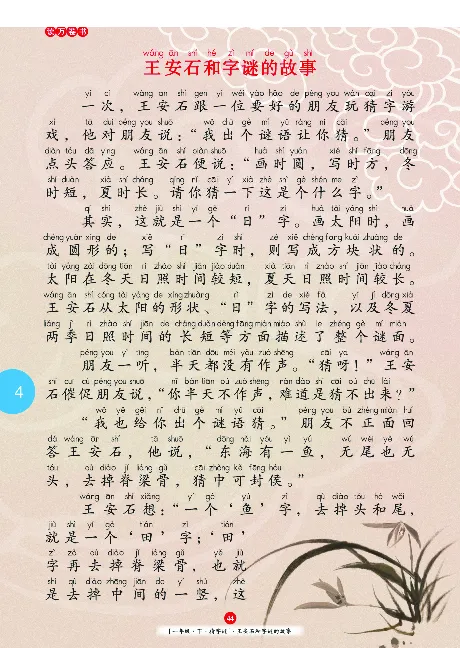 读万卷书
wáng ān shí hé zì mí de gù shi
王安石和字谜的故事
yí cì wáng ān shí gēn yí wèi yào hǎo de péng you wán cāi zì yóu
一次，王安石跟一位要好的朋友玩猜字游
xì tā duì péng you shuō wǒ chū gè mí yǔ ràng nǐ cāi péng you
戏，他对朋友说：“我出个谜语让你猜。”朋友
diǎn tóu dā ying wáng ān shí biàn shuō huà shí yuán xiě shí fāng dōng
点头答应。王安石便说：“画时圆，写时方，冬
shí duǎn xià shí cháng qǐng nǐ cāi yí xià zhè shì gè shén me zì
时短，夏时长。请你猜一下这是个什么字。”
qí shí zhè jiù shì yí gè rì zì huà tài yáng shí huà
其实，这就是一个“日”字。画太阳时，画
chéng yuán xíng de xiě rì zì shí zé xiě chéng fāng kuài zhuàng de
成圆形的；写“日”字时，则写成方块状的。
tài yáng zài dōng tiān rì zhào shí jiān jiào duǎn xià tiān rì zhào shí jiān jiào cháng
太阳在冬天日照时间较短，夏天日照时间较长。
wáng ān shí cóng tài yáng de xíng zhuàng rì zì de xiě fǎ yǐ jí dōng xià
王安石从太阳的形状、“日”字的写法，以及冬夏
liǎng jì rì zhào shí jiān de cháng duǎn děng fāng miàn miáo shù le zhěng gè mí miàn
两季日照时间的长短等方面描述了整个谜面。
péng you yì tīng bàn tiān dōu méi yǒu zuò shēng cāi ya wáng ān
朋友一听，半天都没有作声。“猜呀！”王安
shí cuī cù péng you shuō nǐ bàn tiān bú zuò shēng nán dào shì cāi bù chū lái
石催促朋友说，“你半天不作声，难道是猜不出来？”
wǒ yě gěi nǐ chū gè mí yǔ cāi péng you bú zhèng miàn huí
“我也给你出个谜语猜。”朋友不正面回
dá wáng ān shí tā shuō dōng hǎi yǒu yì yú wú wěi yě wú
答王安石，他说，“东海有一鱼，无尾也无
tóu qù diào jǐ liáng gǔ cāi zhòng kě fēng hóu
头，去掉脊梁骨，猜中可封侯。”
wáng ān shí xiǎng yí gè yú zì qù diào tóu hé wěi
王安石想：“一个‘鱼’字，去掉头和尾，
jiù shì yí gè tián zì tián
就是一个‘田’字；‘田’
zì zài qù diào jǐ liáng gǔ yě jiù
字再去掉脊梁骨，也就
shì qù diào zhōng jiān de yí shù zhè
是去掉中间的一竖，这
4
44
一年级·下·猜字谜·王安石和字谜的故事